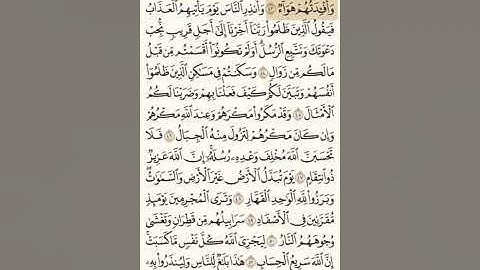 وَأَفْـِٔدَتُهُمْ هَوَآءٌ ٤٣ وَأَنذِرِ ٱلنَّاسَ يَوْمَ يَأْتِيهِمُ ٱلْعَذَابُ
فَيَقُولُ ٱلَّذِينَ ظَلَمُوا۟ رَبَّنَآ أَخِّرْنَآ إِلَىٰٓ أَجَلٍ قَرِيبٍ نُّجِبْ
دَعْوَتَكَ وَنَتَّبِعِ ٱلرُّسُلَ أَوَلَمْ تَكُونُوٓا۟ أَقْسَمْتُم مِّن قَبْلُ
مَا لَكُم مِّن زَوَالٍ ٤٤ وَسَكَنتُمْ فِى مَسَٰكِنِ ٱلَّذِينَ ظَلَمُوٓا۟
أَنفُسَهُمْ وَتَبَيَّنَ لَكُمْ كَيْفَ فَعَلْنَا بِهِمْ وَضَرَبْنَا لَكُمُ
ٱلْأَمْثَالَ ٤٥ وَقَدْ مَكَرُوا۟ مَكْرَهُمْ وَعِندَ ٱللَّهِ مَكْرُهُمْ
وَإِن كَانَ مَكْرُهُمْ لِتَزُولَ مِنْهُ ٱلْجِبَالُ ٤٦ فَلَا
تَحْسَبَنَّ ٱللَّهَ مُخْلِفَ وَعْدِهِۦ رُسُلَهُۥٓ إِنَّ ٱللَّهَ عَزِيزٌ
ذُو ٱنتِقَامٍ ٤٧ يَوْمَ تُبَدَّلُ ٱلْأَرْضُ غَيْرَ ٱلْأَرْضِ وَٱلسَّمَٰوَٰتُ
وَبَرَزُوا۟ لِلَّهِ ٱلْوَٰحِدِ ٱلْقَهَّارِ ٤٨ وَتَرَى ٱلْمُجْرِمِينَ يَوْمَئِذٍ
مُّقَرَّنِينَ فِى ٱلْأَصْفَادِ ٤٩ سَرَابِيلُهُم مِّن قَطِرَانٍ وَتَغْشَىٰ
وُجُوهَهُمُ ٱلنَّارُ ٥٠ لِيَجْزِىَ ٱللَّهُ كُلَّ نَفْسٍ مَّا كَسَبَتْ
إِنَّ ٱللَّهَ سَرِيعُ ٱلْحِسَابِ ٥١ هَٰذَا بَلَٰغٌ لِّلنَّاسِ وَلِيُنذَرُوا۟ بِهِۦ